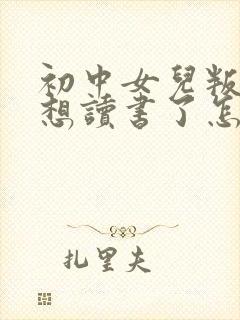 初中女兒叛
想讀書了怎
扎里夫